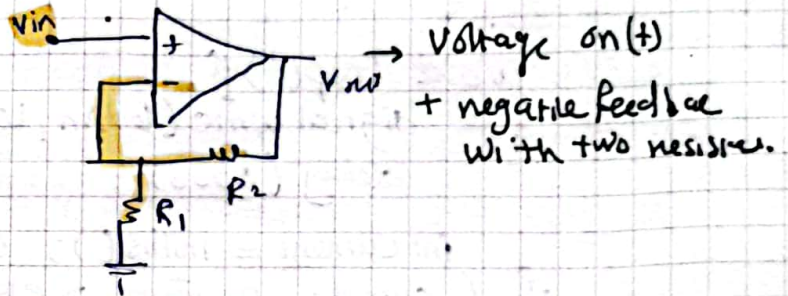 Vin
+
-
Vout
R2
R1
→ Voltage on (+)
+ negative feedbac
with two resistres.